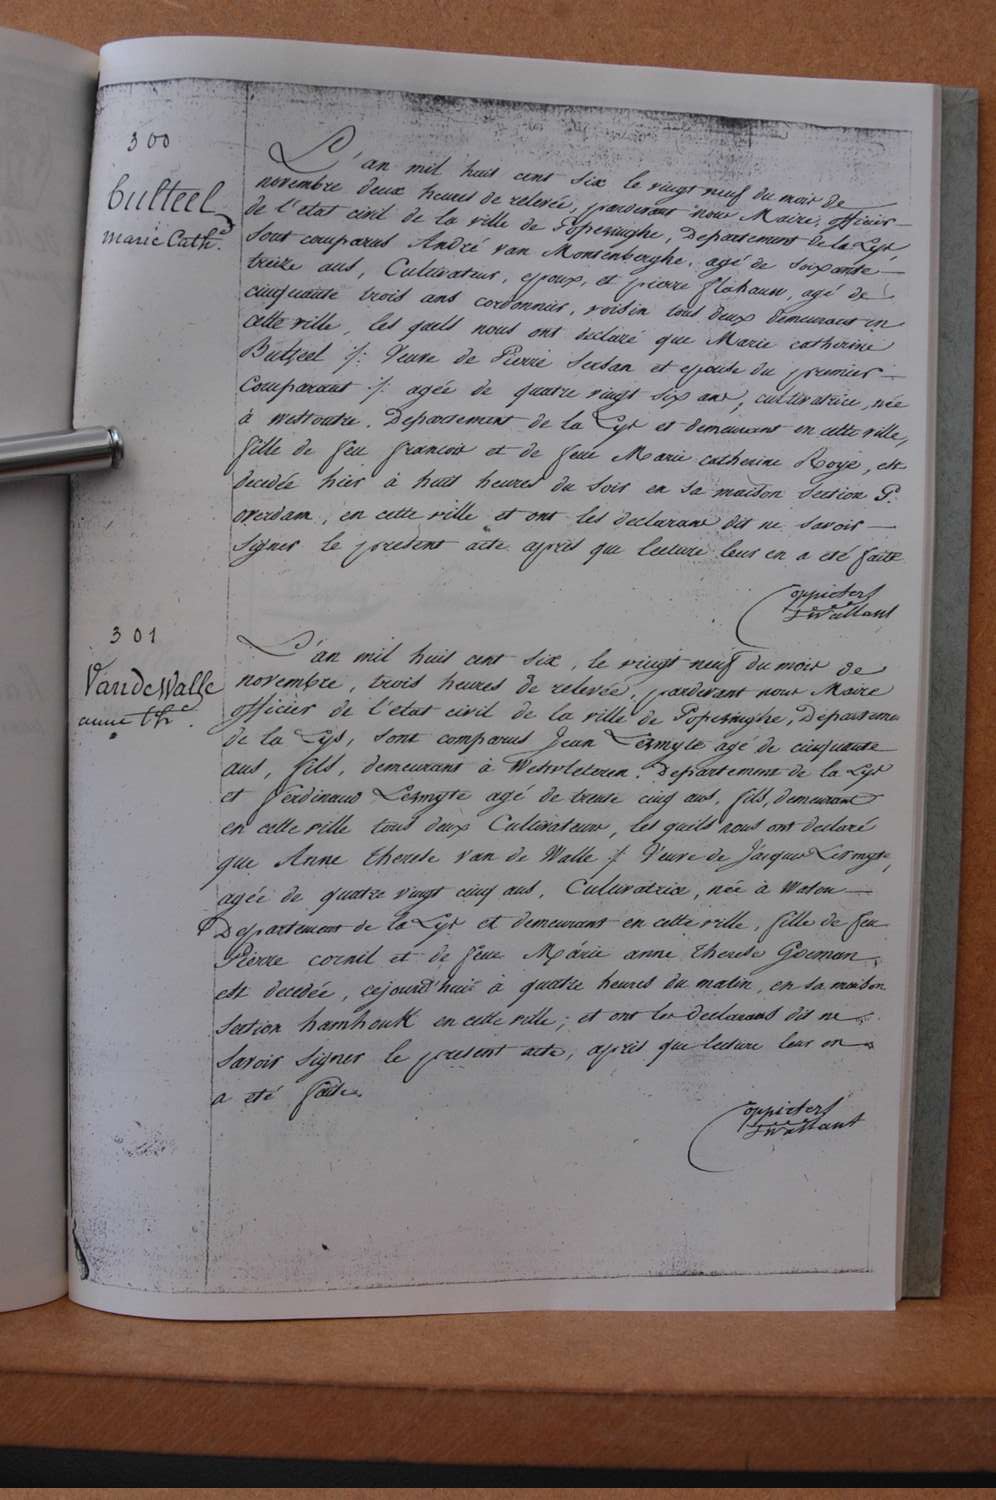 300
Bulteel
marie Cathe.
L'an mil huit cent six le vingt neuf du mois de
novembre deux heures de relevée, pardevant nous Maire, officier
de l'etat civil de la ville de Poperinghe, Departement de la Lys
sont comparus André van Montenberghe, agé de soixante
treize ans, Cultivateur, epoux, et pierre flahaun, agé de
cinquante trois ans cordonnier, voisin tous deux demeurans en
cette ville, les quels nous ont declaré que Marie catherine
Bulteel /: Veuve de Pierre Sersan et epouse du premier
Comparant :/ agée de quatre vingt six ans, cultivatrice, née
à westoutre, Departement de la Lys et demeurant en cette ville,
fille de feu francois et de feue Marie catherine Roye, est
decedée hier à huit heures du soir en sa maison section P.
overdam, en cette ville et ont les declarans dit ne savoir
signer le present acte après que lecture leur en a eté faite
Coppieters
301
Van de Walle
anne Thce.
L'an mil huit cent six, le vingt neuf du mois de
novembre, trois heures de relevée, pardevant nous Maire
officier de l'etat civil de la ville de Poperinghe, Departeme
de la Lys, sont comparus Jean Lermyte agé de cinquante
ans, fils, demeurant à Westvleteren, Departement de la Lys
et Ferdinand Lermyte agé de trente cinq ans, fils, demeurant
en cette ville tous deux Cultivateurs, les quels nous ont declaré
que Anne therese van de Walle /: Veuve de Jacques Lermyte,
agée de quatre vingt cinq ans, Cultivatrice, née à Watou
Departement de la Lys et demeurant en cette ville, fille de feu
Pierre cornil et de feue Marie anne therese Goeman,
est decedée, cejourd'huit à quatre heures du matin, en sa maison
section hamhoukk en cette ville; et ont les declarans dit ne
savoir signer le present acte, après que lecture leur en
a eté faite.
Coppieters